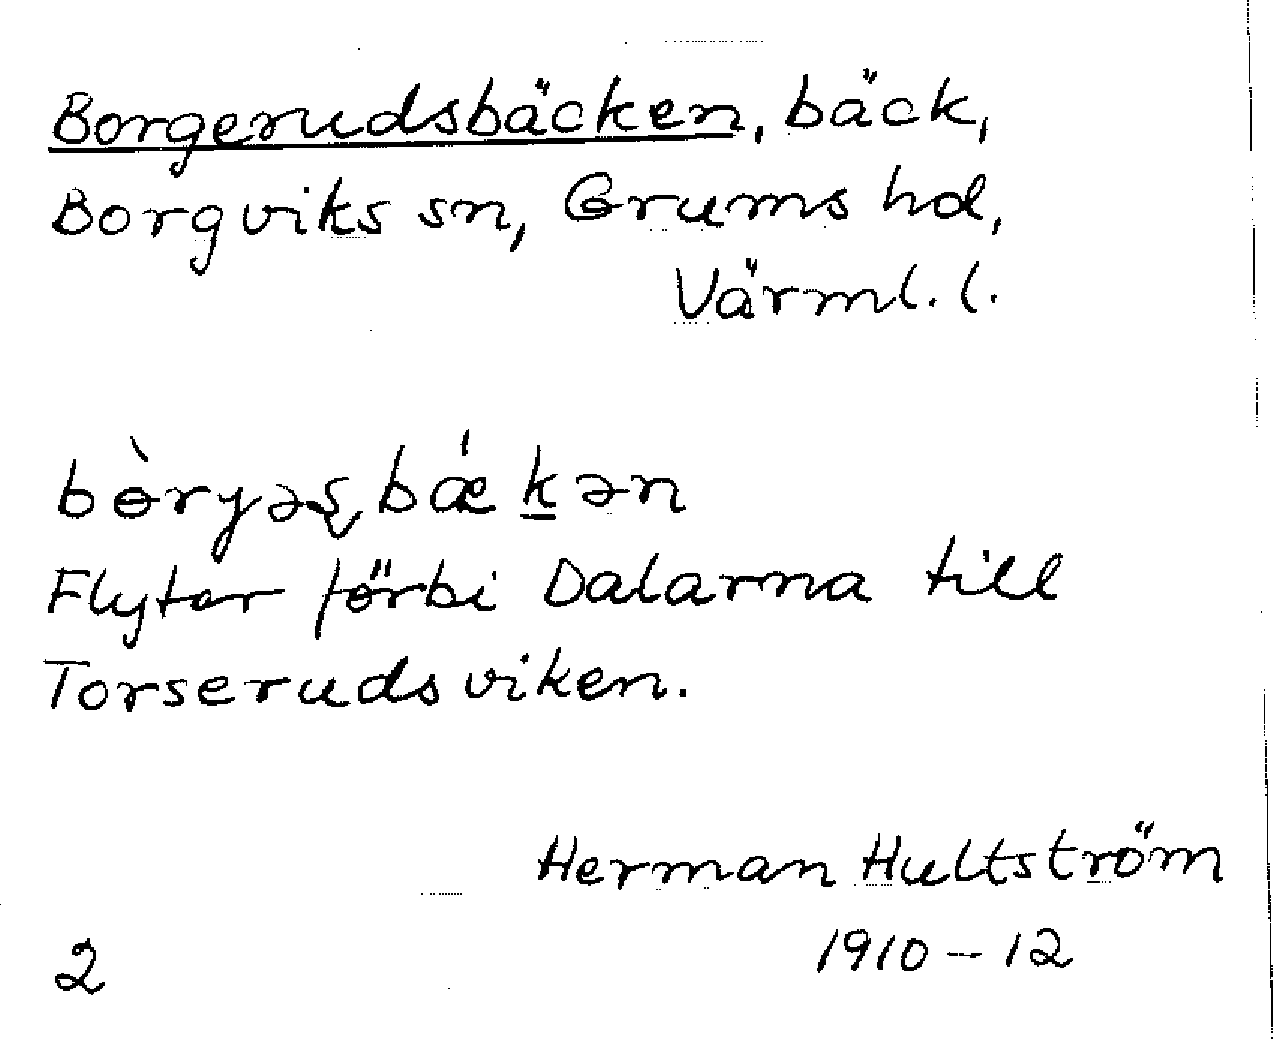 Borgerudsbäcken, bäck,
Borgviks sn, Grums hd,
Värml. l.
bɵ̀ryəʂbǽk̲ən
Flyter förbi Dalarna till
Torserudsviken.
Herman Hultström
1910-12
2